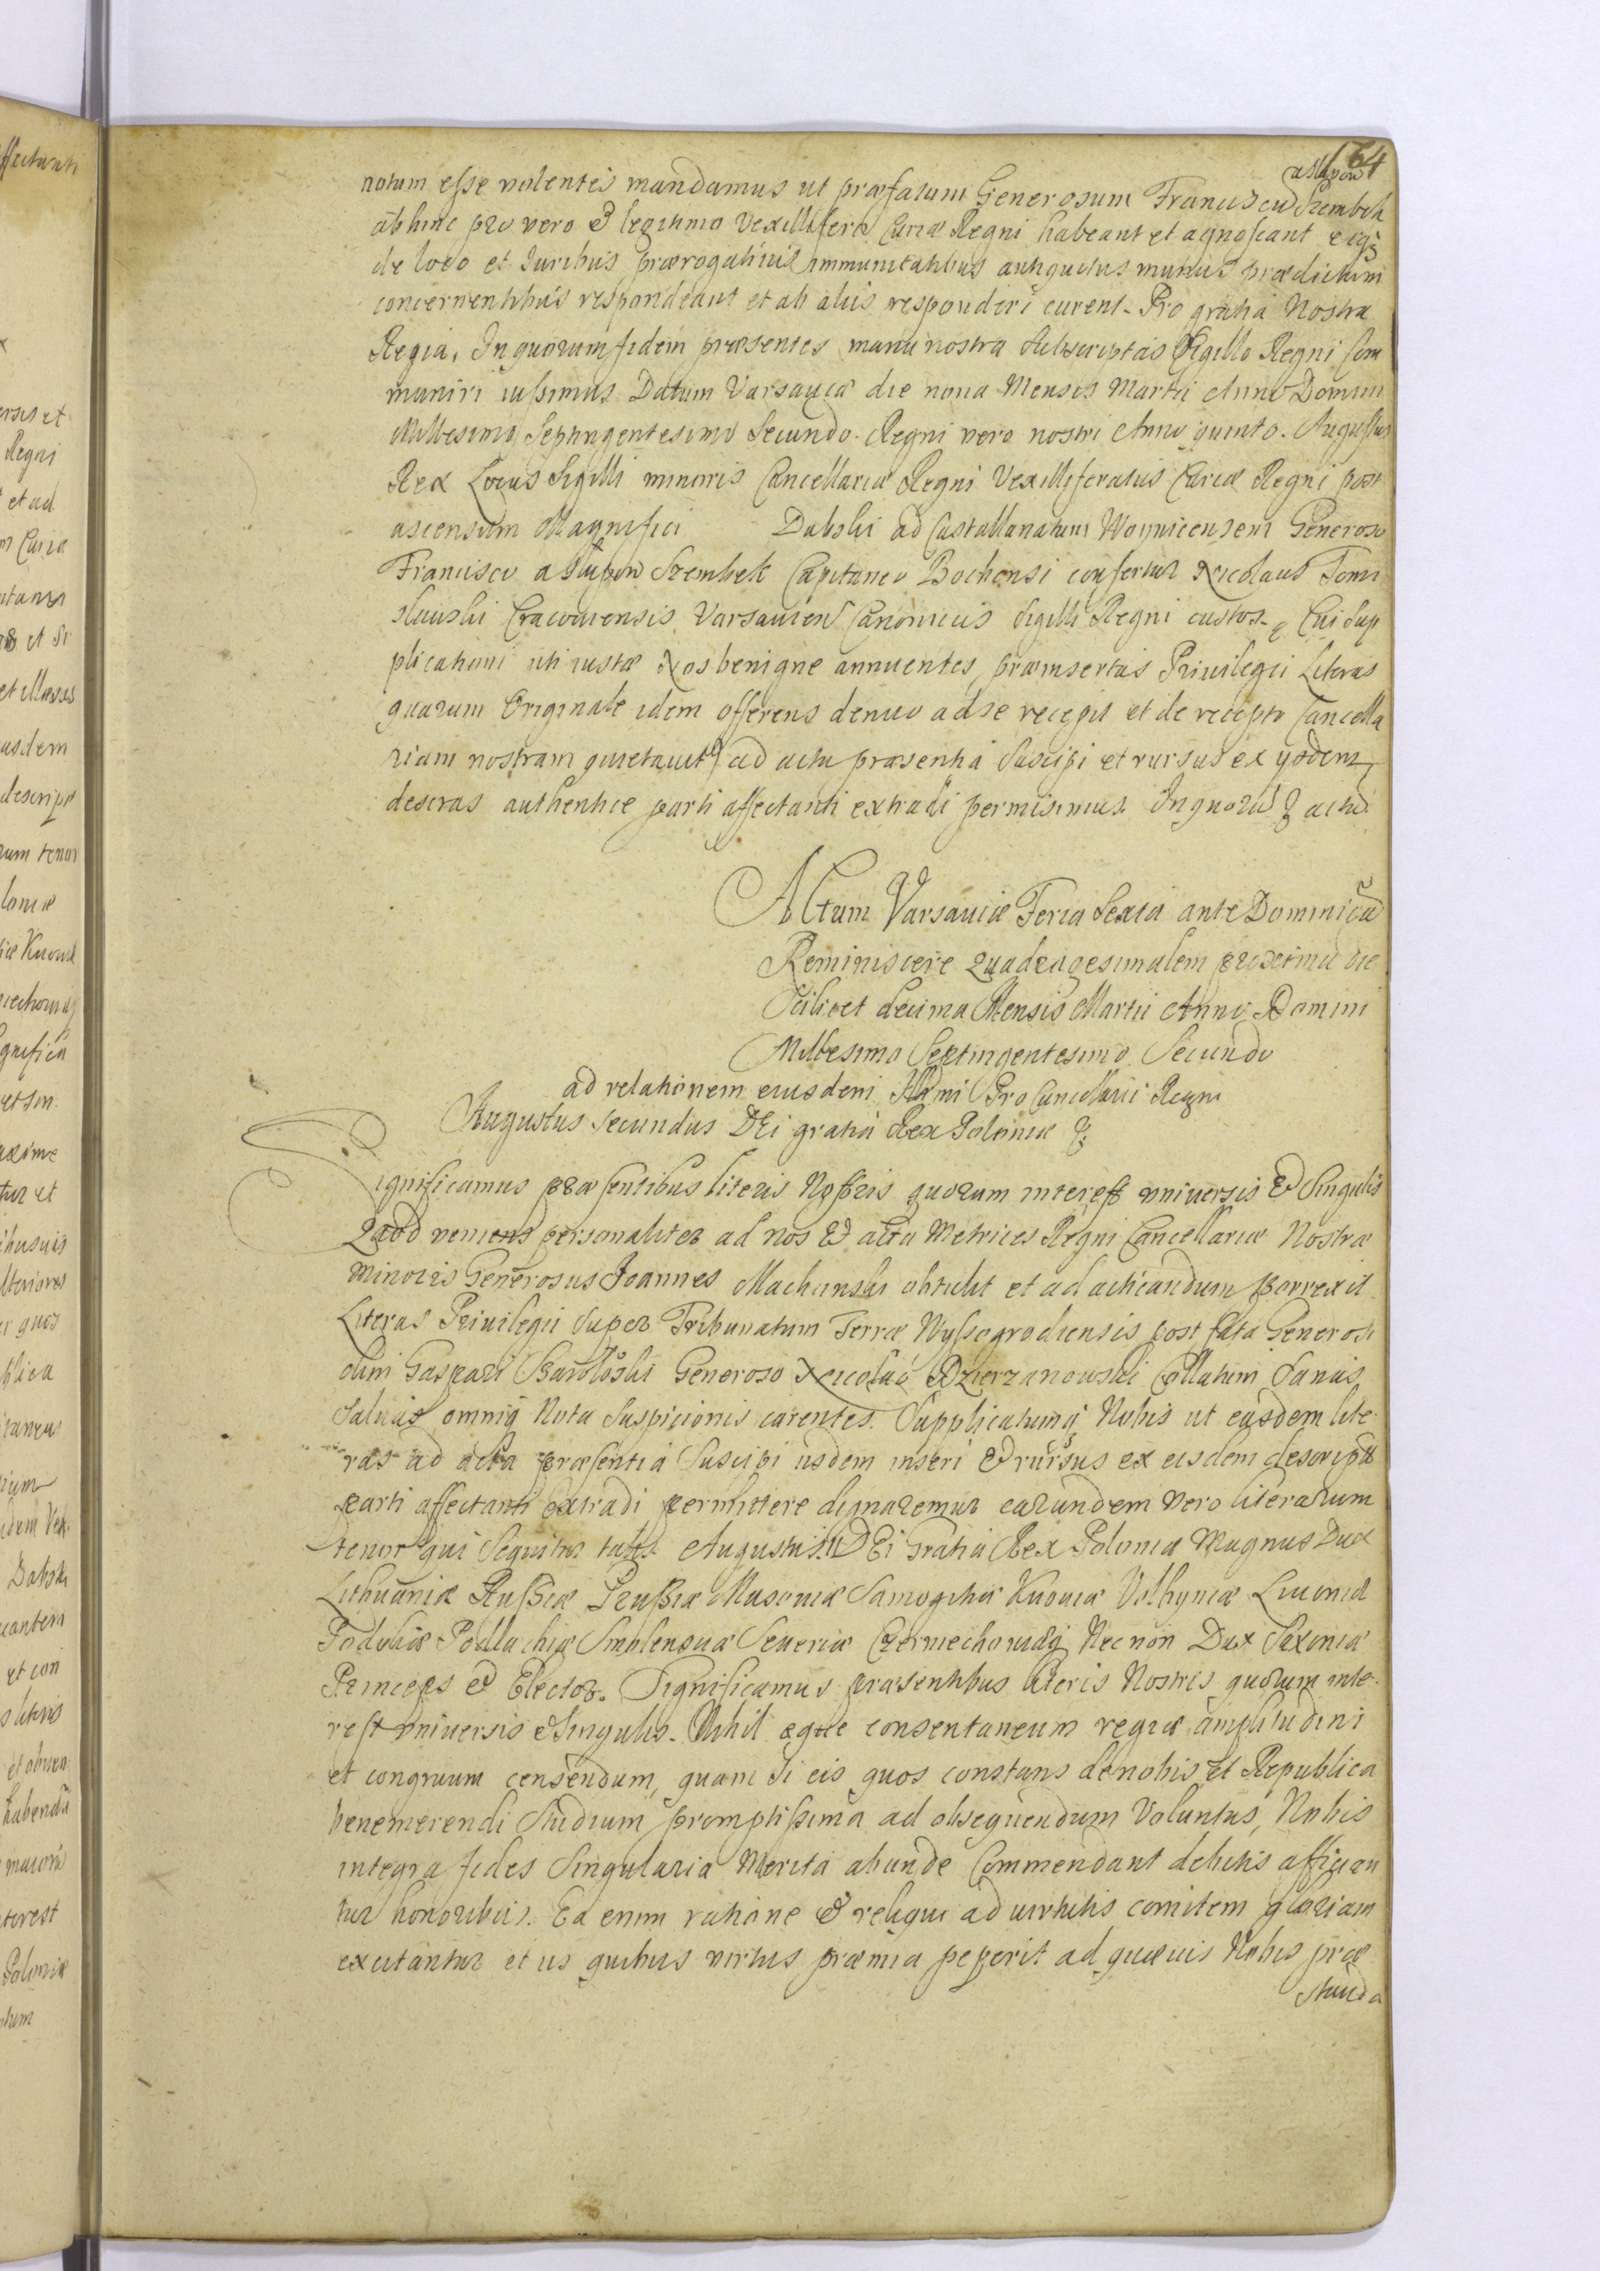 164
a Słupow
notum esse volentes mandamus ut præfatum Generosum Franciscū Szembek
abhinc pro vero & legitimo Vexillifero Curiæ Regni habeant et agnoscant eiq3
de loco et Juribus prærogativis immunitatibus antiquitus munus prædictum
concernentibus respondeant et ab aliis responderi curent. Pro gratia Nostra
Regia. In quorum fidem præsentes manu nostra subscriptas Sigillo Regni com
muniri iussimus Datum Varsaviæ die nona Mensis Martii Anno Domini
Millesimo Septingentesimo Secundo. Regni vero nostri Anno quinto. Augustus
Rex Locus Sigilli minoris Cancellariæ Regni Vexilliferatus Curiæ Regni post
ascensum Magnifici Dabski ad Castellanatum Woynicensem Generoso
Francisco a Słupow Szembek Capitaneo Bochensi confertur Nicolaus Tomi
sławski Cracoviensis Varsavien Canonicus Sigilli Regni custos. Cui sup
plicationi uti iustæ Nos benigne annuentes, præinsertas Privilegii Literas
quarum Originale idem offerens denuo ad se recepit et de recepto Cancella
riam nostram quietavit ad acta præsentia suscipi et rursus ex ysdem
descras authentice parti affectanti extradi permisimus. In quorū & actū
Actum Varsaviæ Feria Sexta ante Dominicā
Reminiscere Quadragesimalem proximā die
Scilicet decima Mensis Martii Anno Domini
Millesimo Septingentesimo Secundo
ad relationem eiusdem Illmi ProCancellarii Regni
Augustus Secundus DEi gratia Rex Poloniæ &
Significamus præsentibus literis Nostris quorum interest universis & Singulis
Quod veniens personaliter ad nos & acta Metrices Regni Cancellariæ Nostræ
Minoris Generosus Joannes Machinski obtulit et ad acticandum porrexit
Literas Privilegii super Tribunatum Terræ Wyssogrodiensis post fata Generosi
olim Gaspari Generoso Nicolao Dzierzanowski Collatum Sanas
Salvas omniq nota Suspicionis carentes. Supplicatumq Nobis ut easdem lite
ras ad acta præsentia Suscipi iisdem inseri & rursus ex eisdem descriptū
parti affectanti extradi permittere dignaremur earundem vero literarum
tenor qui Sequitur talis. Augustus II DEi Gratia Rex Poloniæ Magnus Dux
Lithuaniæ Russiæ Prussiæ Masoviæ Samogitiæ Kijoviæ Volhyniæ Livoniæ
Podoliæ Podlachiæ Smolensciæ Severiæ Czerniechoviæq Nec non Dux Saxoniæ
Princeps & Elector. Significamus præsentibus literis Nostris quorum inte
rest universis & Singulis. Nihil æque consentaneum regiæ amplitudini
et congruum censendum, quam si eis quos constans de nobis et Republica
benemerendi Studium promptissima ad obsequendum Voluntas, Nobis
integra fides Singularia Merita abunde Commendant debitis afficien
tur honoribus. Ea enim ratione & reliqui ad virtutis comitem gloriam
excitantur et iis quibus virtus præmia peperit ad quævis Nobis præ
standa